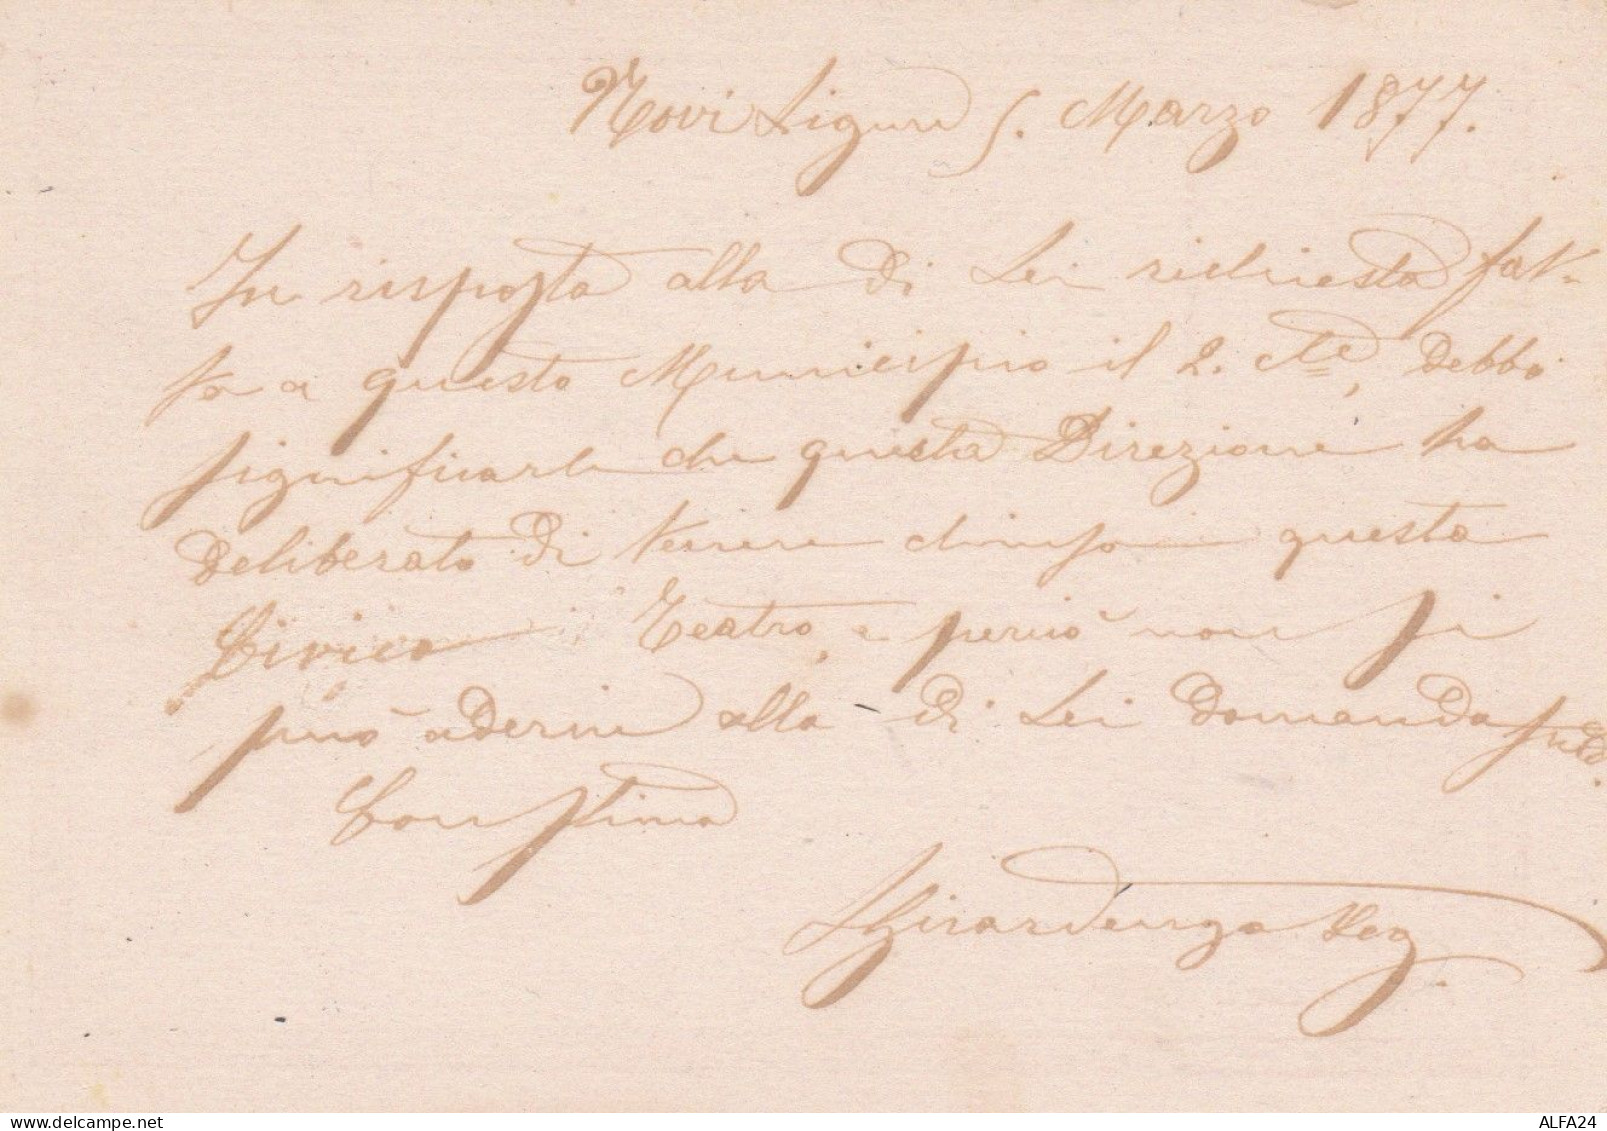 Novi Ligure 5. Marzo 1877.
In risposta alla di Lei richiesta fat-
ta a questo Municipio il 2. cte, debbo
significarle che questa Direzione ha
deliberato di tenere chiuso questo
Civico Teatro, e perciò non si
può aderire alla di Lei domanda
Con stima
Girardengo
ALFA24